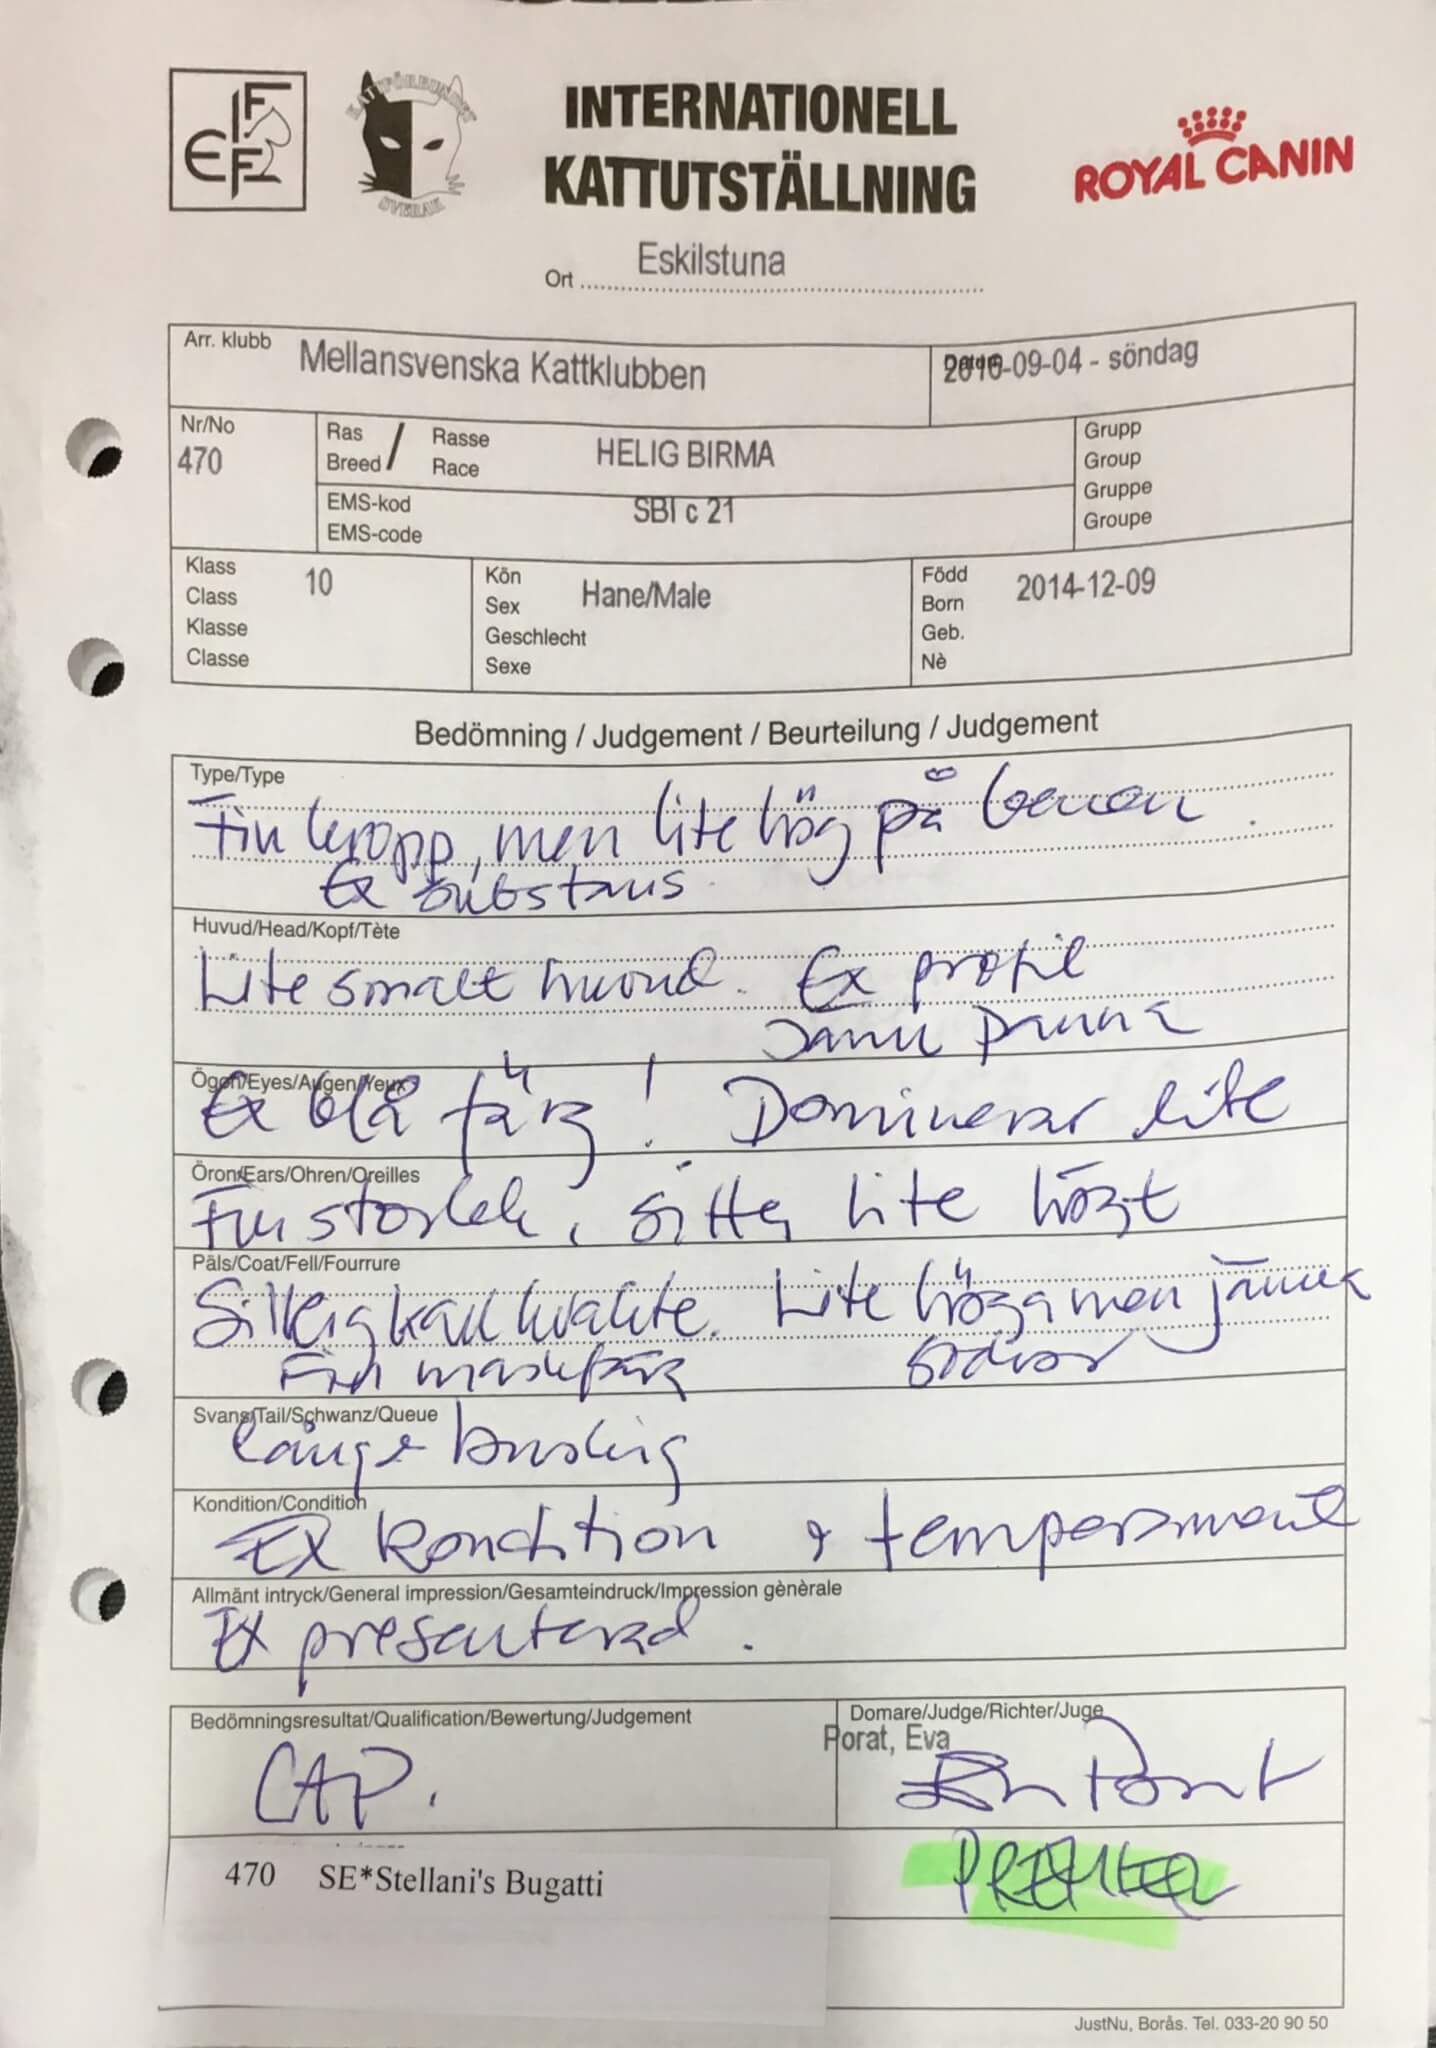 FIFe
KATTFÖRBUNDET
SVERAK
INTERNATIONELL
KATTUTSTÄLLNING
ROYAL CANIN
Ort Eskilstuna
Arr. klubb Mellansvenska Kattklubben
Datum 2016-09-04 - söndag
Nr/No
470
Ras / Rasse
Breed Race
HELIG BIRMA
EMS-kod
EMS-code
SBI c 21
Grupp
Group
Gruppe
Groupe
Klass
Class
Klasse
Classe
10
Kön
Sex
Geschlecht
Sexe
Hane/Male
Född
Born
Geb.
Nè
2014-12-09
Bedömning / Judgement / Beurteilung / Judgement
Type/Type
Fin kropp, men lite hög på benen.
Ex substans
Huvud/Head/Kopf/Tète
Lite smalt huvud. Ex profil
Jämn panna
Ögon/Eyes/Augen/Yeux
Ex blå färg! Dominerar lite
Öron/Ears/Ohren/Oreilles
Fin storlek, sitter lite högt
Päls/Coat/Fell/Fourrure
Silkig kvalité. Lite höga men jämna
Fin maskfärg sockor
Svans/Tail/Schwanz/Queue
Lång & buskig
Kondition/Condition
Ex kondition & temperament
Allmänt intryck/General impression/Gesamteindruck/Impression gènèrale
Ex presenterad.
Bedömningsresultat/Qualification/Bewertung/Judgement
CAP.
Domare/Judge/Richter/Juge
Porat, Eva
Eva Porat
470 SE*Stellani's Bugatti
PREMIER
JustNu, Borås. Tel. 033-20 90 50